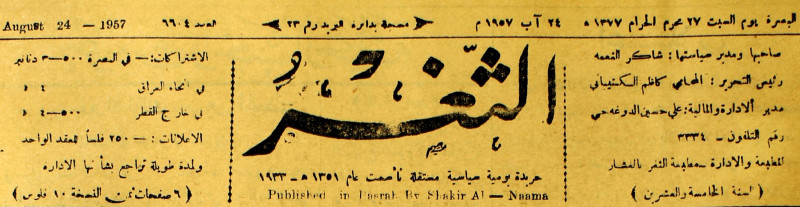 البصرة يوم السبت ٢٧ محرم الحرام ١٣٧٧ هـ ٢٤ آب ١٩٥٧ م مسجلة بدائرة البريد رقم ٢٣ العدد ٦٦٠٤ August 24 — 1957
صاحبها ومدير سياستها: شاكر النعمه
رئيس التحرير: المحامي كاظم الكشيباني
مدير الادارة والمالية: علي حسين الدوغه جي
رقم التلفون — ٣٣٣٤
المطبعة والادارة — مطبعة الثغر بالفشار
(السنة الخامسة والعشرين)
الثغر
جريدة يومية سياسية مستقلة تأسست عام ١٣٥١ هـ — ١٩٣٣
Published in Basrah By Shakir Al — Naama
الاشتراكات:— في البصرة ٥٠٠—٣ دنانير
في انحاء العراق ٤ »
في خارج القطر ٥٠٠—٤ »
الاعلانات:— ٢٥٠ فلساً للعقد الواحد
ولمدة طويلة تراجع بشأنها الادارة
(٦ صفحات ثمن النسخة ١٠ فلوس)